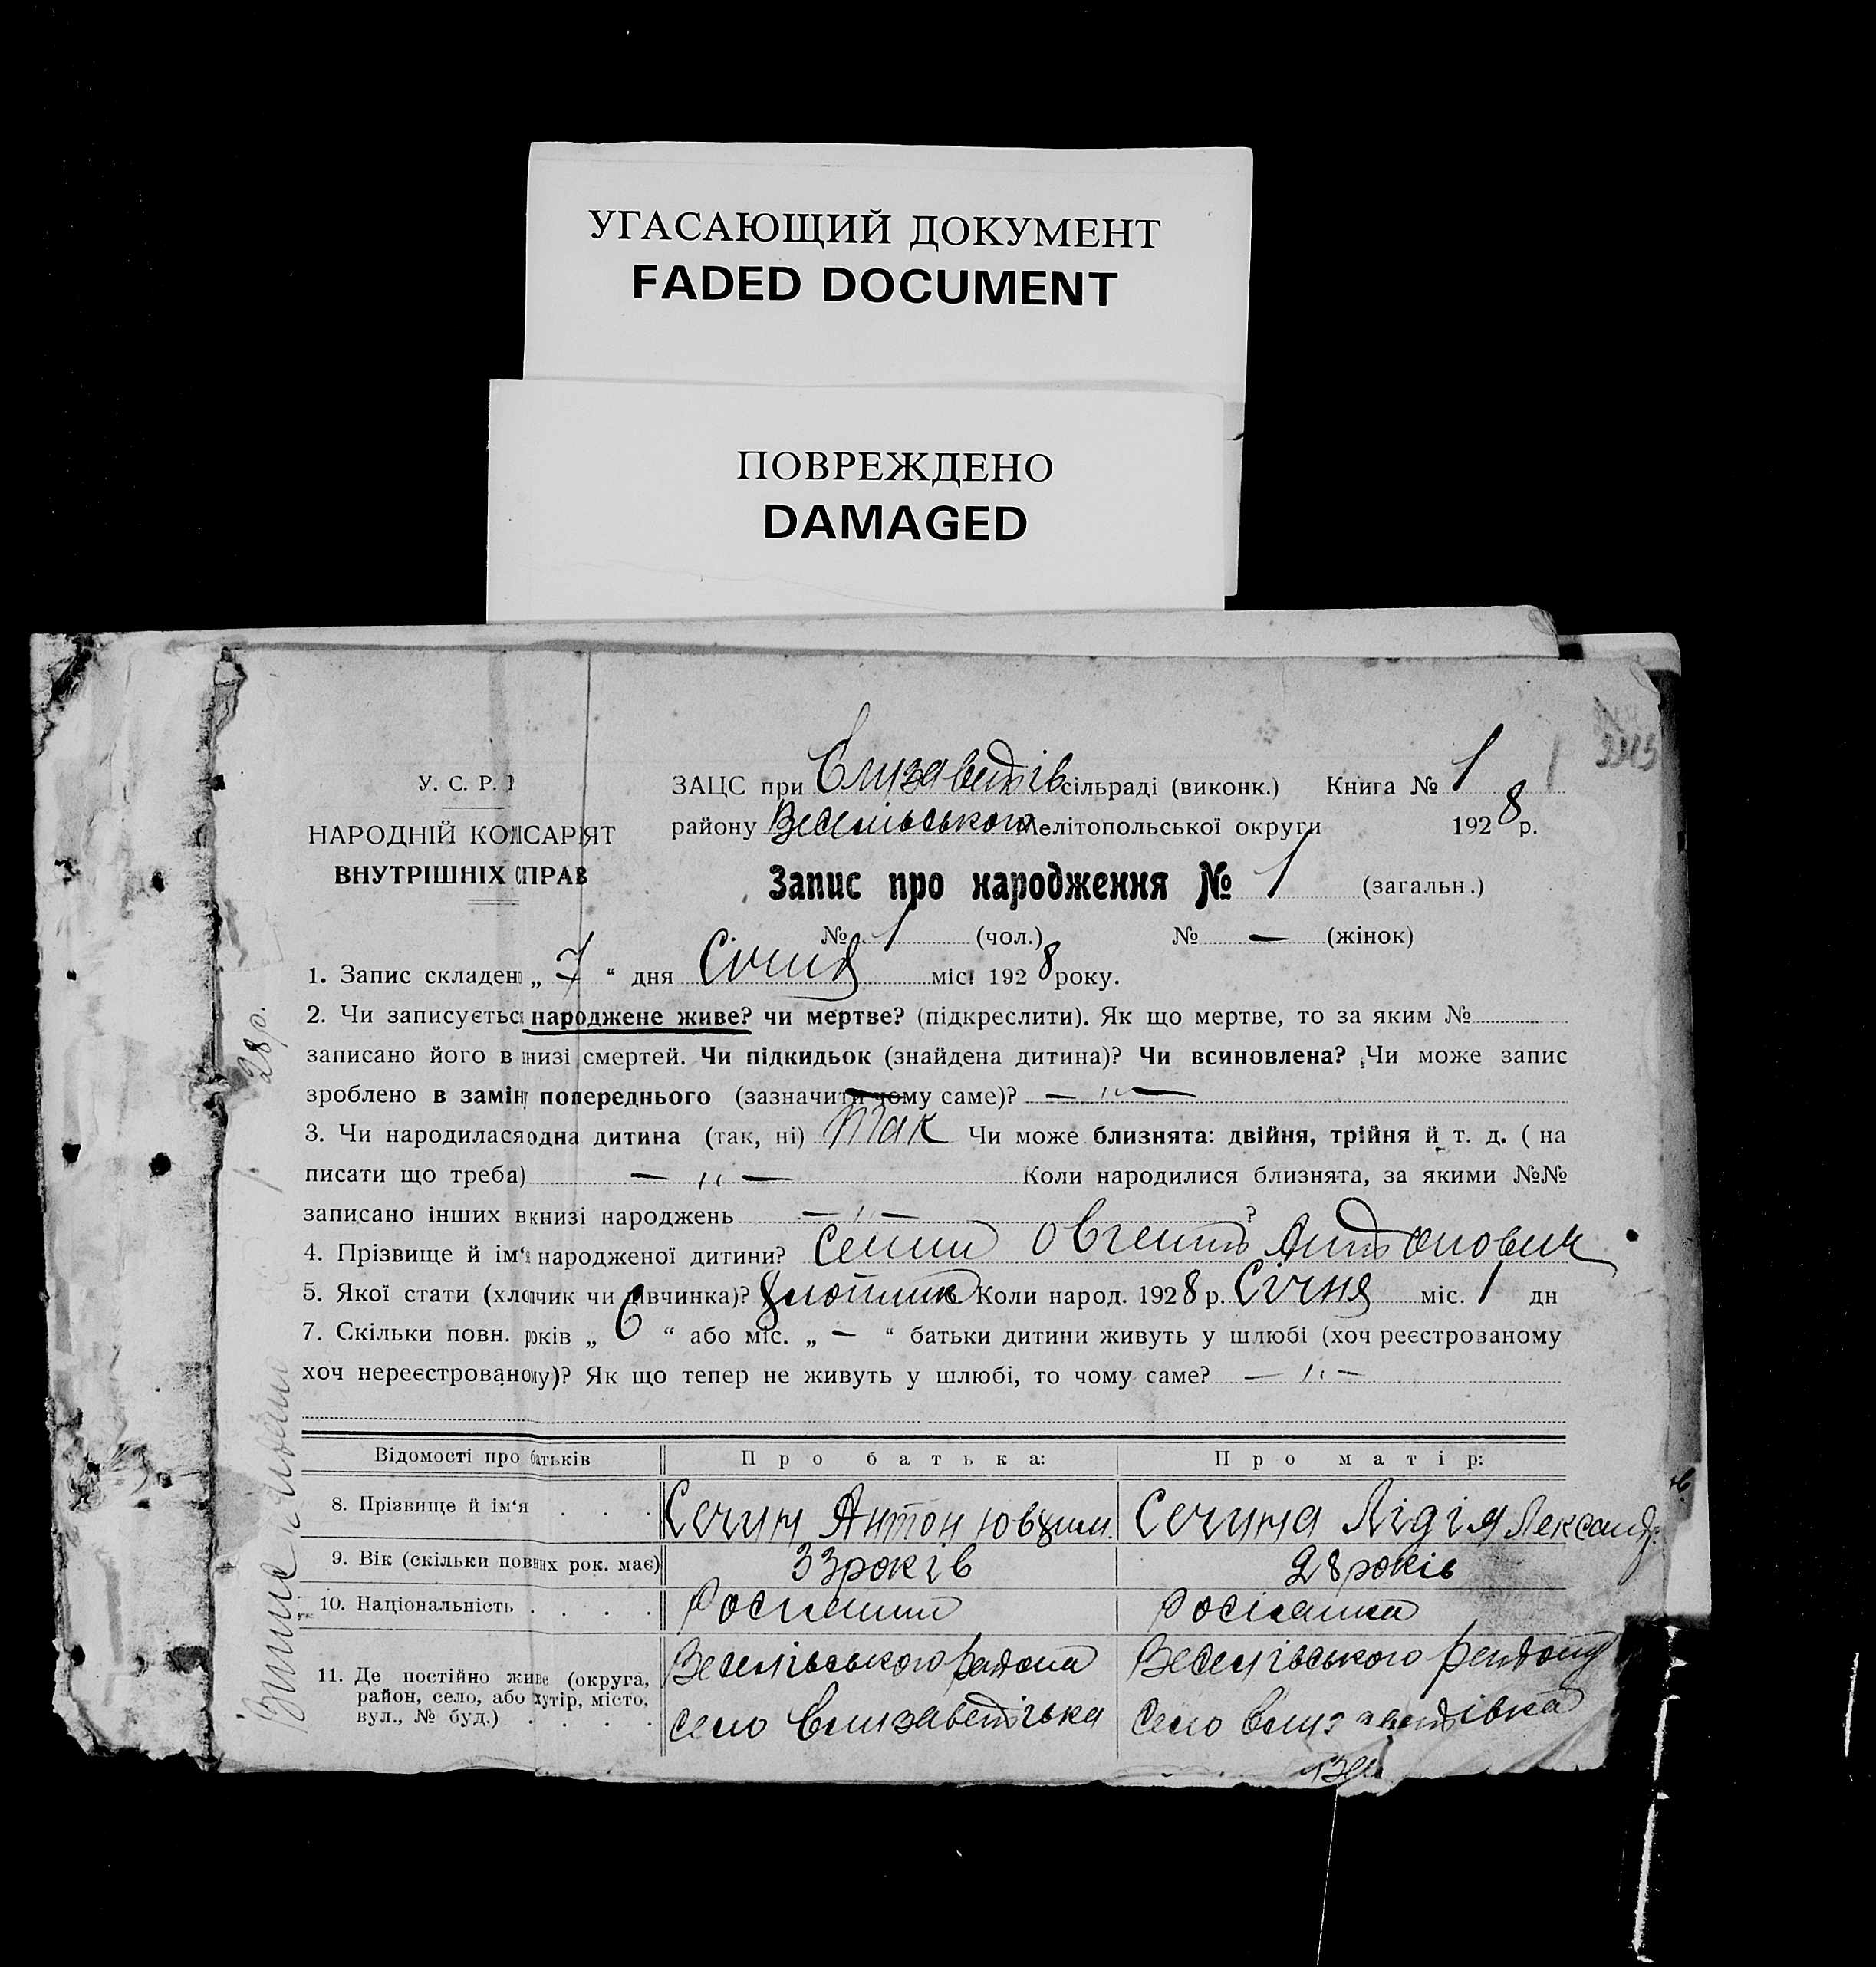 УГАСАЮЩИЙ ДОКУМЕНТ
FADED DOCUMENT
ПОВРЕЖДЕНО
DAMAGED
У. С. Р. Р.
НАРОДНІЙ КОМІСАРІЯТ
ВНУТРІШНІХ СПРАВ
ЗАЦС при Єлизаветів сільраді (виконк.) Книга № 1
району Веселівського Мелітопольської округи 1928 р.
Запис про народження № 1 (загальн.)
№ 1 (чол.) № — (жінок)
1. Запис складено „ 7 “ дня Січня міс. 1928 року.
2. Чи записується народжене живе? чи мертве? (підкреслити). Як що мертве, то за яким №
записано його в книзі смертей. Чи підкидьок (знайдена дитина)? Чи всиновлена? Чи може запис
зроблено в заміну попереднього (зазначити чому саме)? — „ —
3. Чи народилася одна дитина (так, ні) Так Чи може близнята: двійня, трійня й т. д. (на
писати що треба) — „ — Коли народилися близнята, за якими №№
записано інших в книзі народжень — „ — ?
4. Прізвище й ім‘я народженої дитини? Овгений Антонович
5. Якої стати (хлопчик чи дівчинка)? Хлопчик Коли народ. 1928 р. Січня міс. 1 дн
7. Скільки повн. років „ 6 “ або міс. „ — “ батьки дитини живуть у шлюбі (хоч реєстрованому
хоч нереєстрованому)? Як що тепер не живуть у шлюбі, то чому саме? — „ —
Відомості про батьків Про батька: Про матір:
8. Прізвище й ім‘я . . . Сечин Антон Сечина Лідія Лександ.
9. Вік (скільки повних рок. має) 33 років 28 років
10. Національність . . . . Росіянин Росіянка
11. Де постійно живе (округа, Веселівського района Веселівського району
район, село, або хутір, місто, село Єлизаветівка село Єлизаветівка
вул., № буд.) . . . .
28 р.